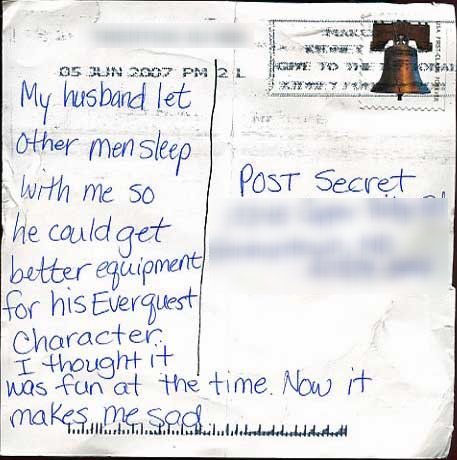 05 JUN 2007 PM 2 L
My husband let
other men sleep
with me so
he could get
better equipment
for his Everquest
Character.
I thought it
was fun at the time. Now it
makes me sad
POST Secret